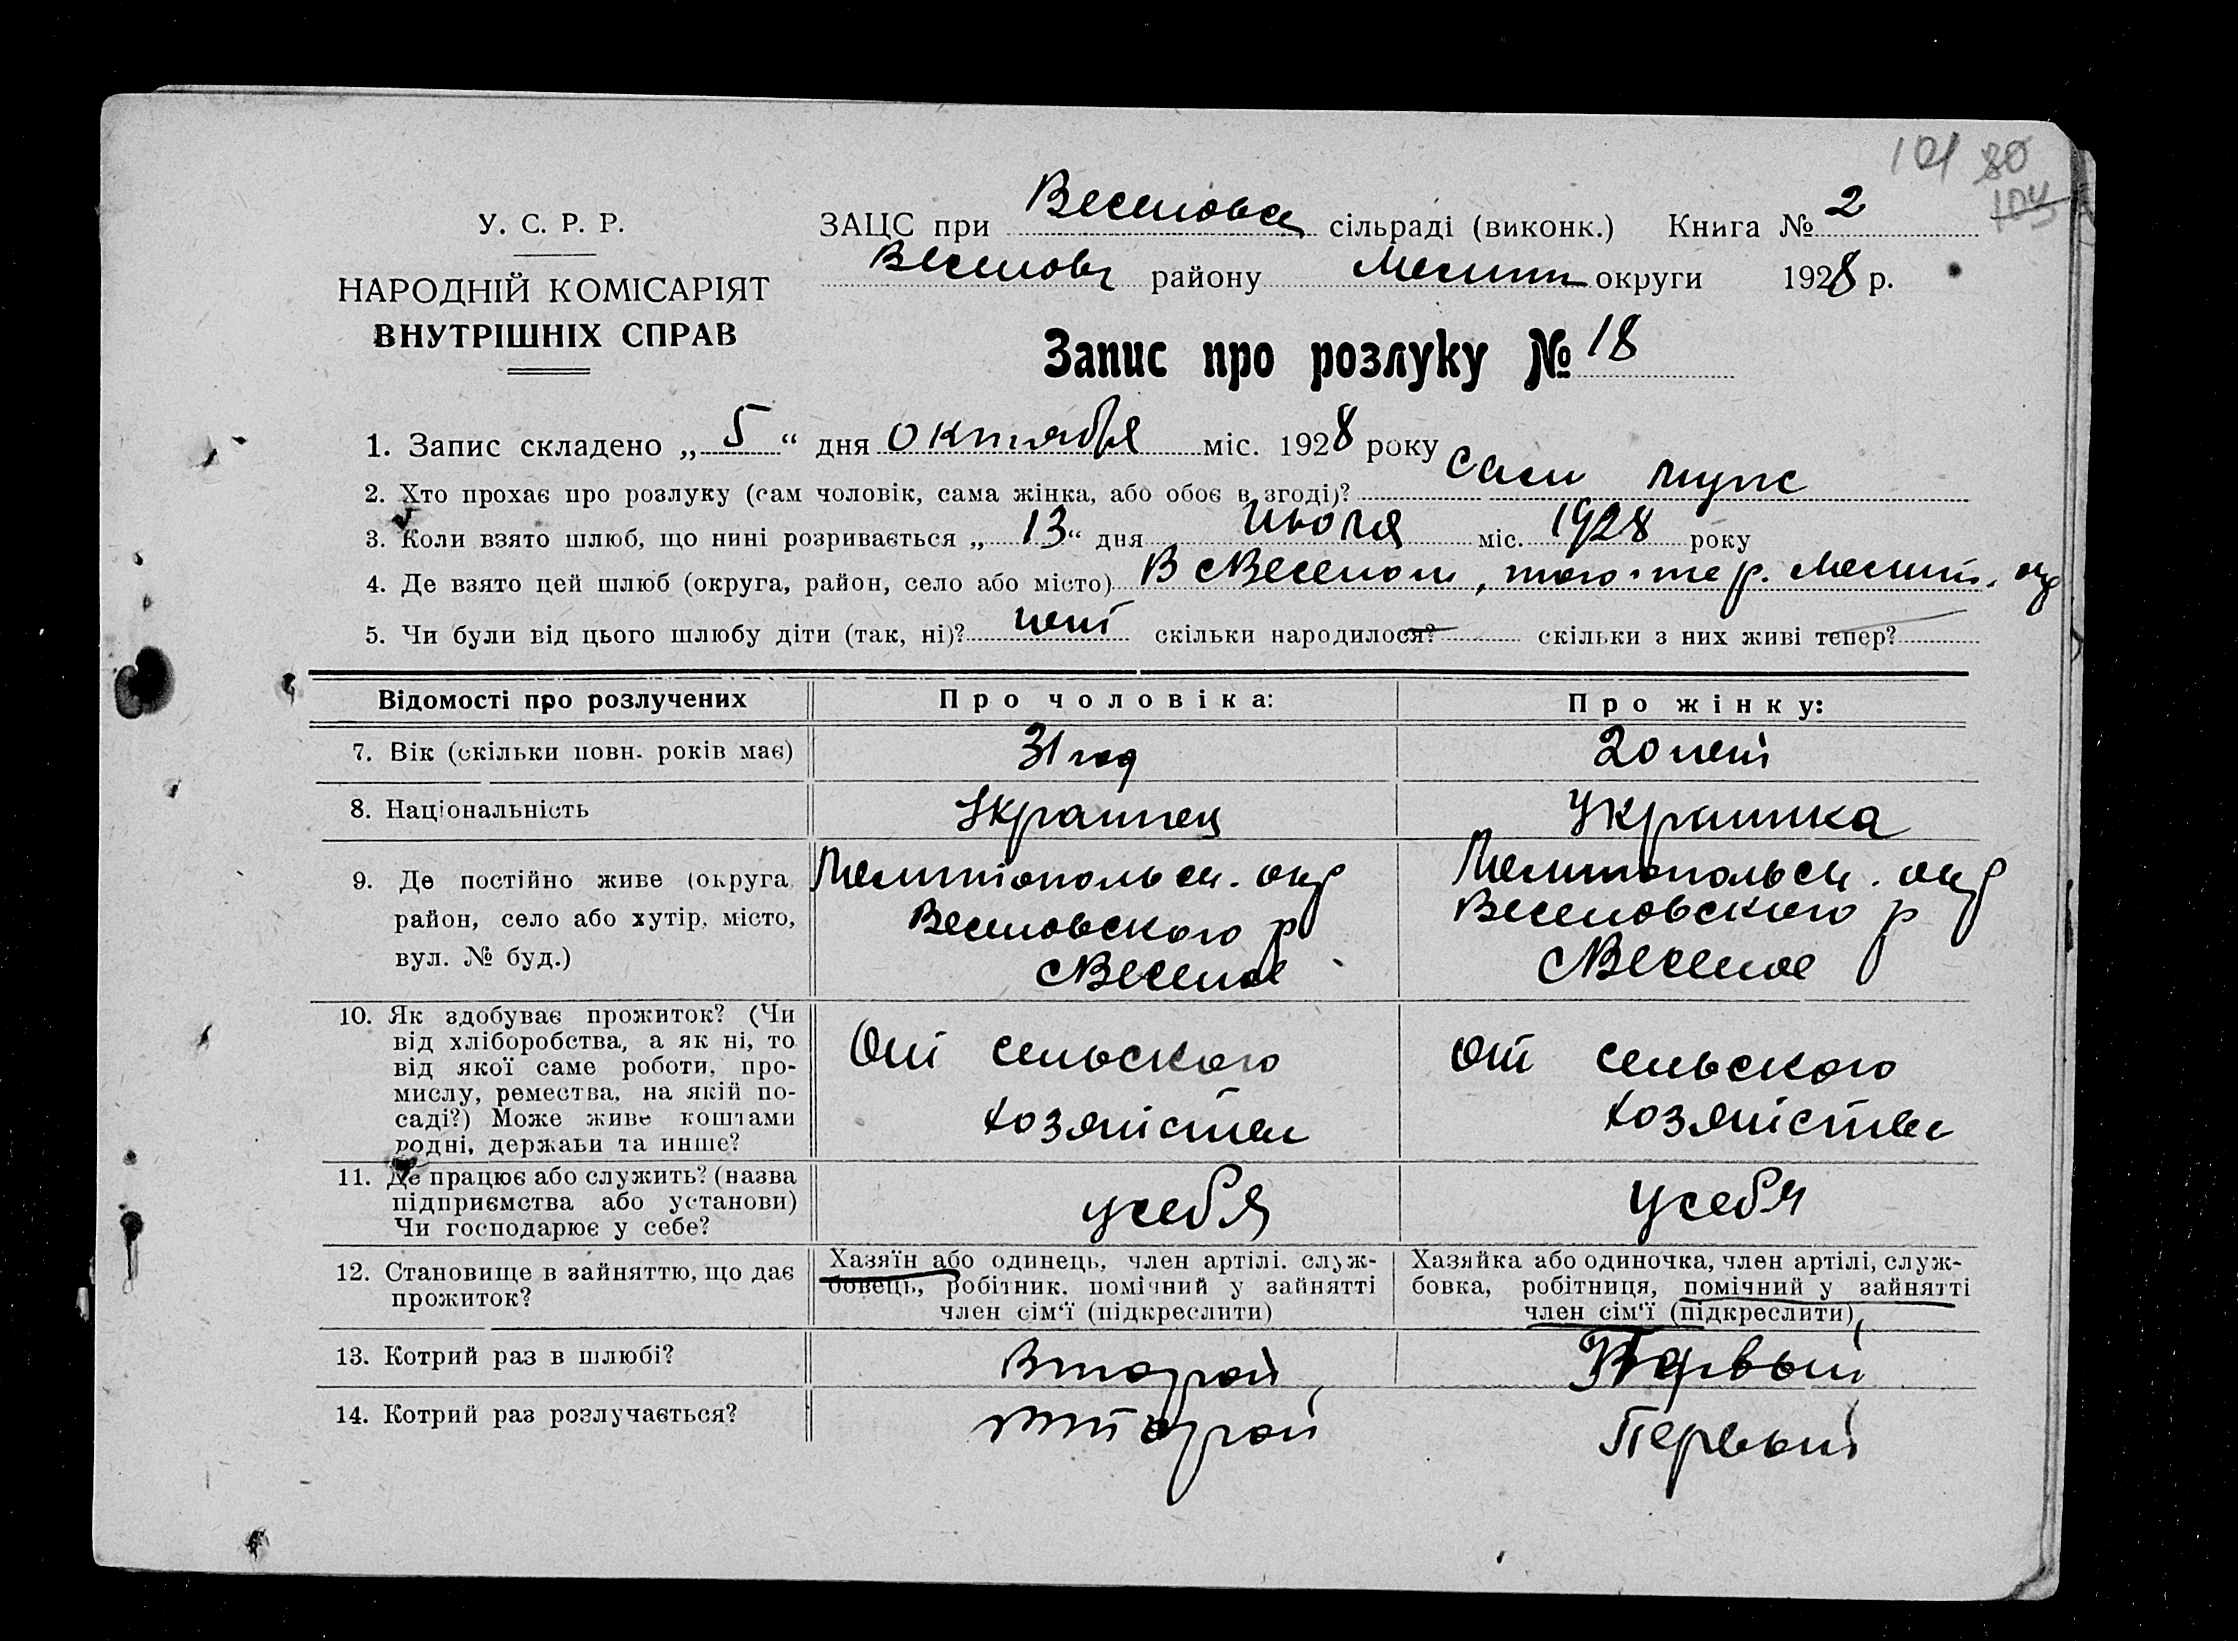 101 80
104
У. С. Р. Р.
НАРОДНІЙ КОМІСАРІЯТ
ВНУТРІШНІХ СПРАВ
ЗАЦС при Веселовск сільраді (виконк.) Книга № 2
Веселовск району Мелит округи 1928 р.
Запис про розлуку № 18
1. Запис складено „ 5 “ дня октября міс. 1928 року
2. Хто прохає про розлуку (сам чоловік, сама жінка, або обоє в згоді)? сам муж
3. Коли взято шлюб, що нині розривається „ 13 “ дня июля міс. 1928 року
4. Де взято цей шлюб (округа, район, село або місто) В с Веселом, того-же р. Мелит. окр
5. Чи були від цього шлюбу діти (так, ні)? нет скільки народилося? скільки з них живі тепер?
Відомості про розлучених Про чоловіка: Про жінку:
7. Вік (скільки повн. років має) 31 год 20 лет
8. Національність Украинец Украинка
9. Де постійно живе (округа, Мелитопольск. окр Мелитопольск. окр
район, село або хутір, місто, Веселовского р Веселовского р
вул. № буд.) с Веселое с Веселое
10. Як здобуває прожиток? (Чи
від хліборобства, а як ні, то
від якої саме роботи, про- От сельского от сельского
мислу, ремества, на якій по-
саді?) Може живе коштами хозяйства хозяйства
родні, держави та инше?
11. Де працює або служить? (назва
підприємства або установи) у себя у себя
Чи господарює у себе?
12. Становище в зайняттю, що дає
прожиток?
Хазяїн або одинець, член артілі, служ-
бовець, робітник, помічний у зайнятті
член сім'ї (підкреслити)
Хазяйка або одиночка, член артілі, служ-
бовка, робітниця, помічний у зайнятті
член сім'ї (підкреслити)
13. Котрий раз в шлюбі? Второй Первый
14. Котрий раз розлучається? второй Первый